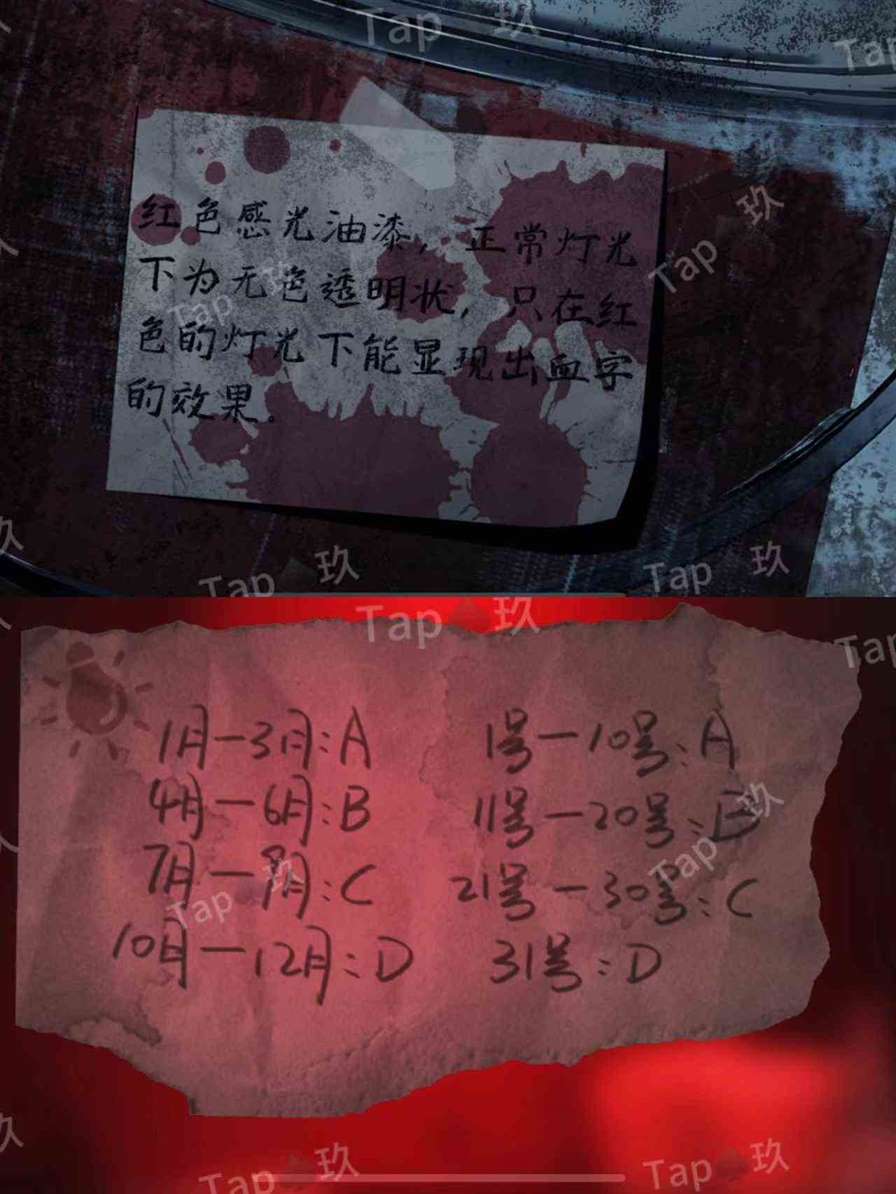 Tap 玖
红色感光油漆，正常灯光
下为无色透明状，只在红
色的灯光下能显现出血字
的效果。
1月-3月:A 1号-10号:A
4月-6月:B 11号-20号:B
7月-9月:C 21号-30号:C
10月-12月:D 31号:D